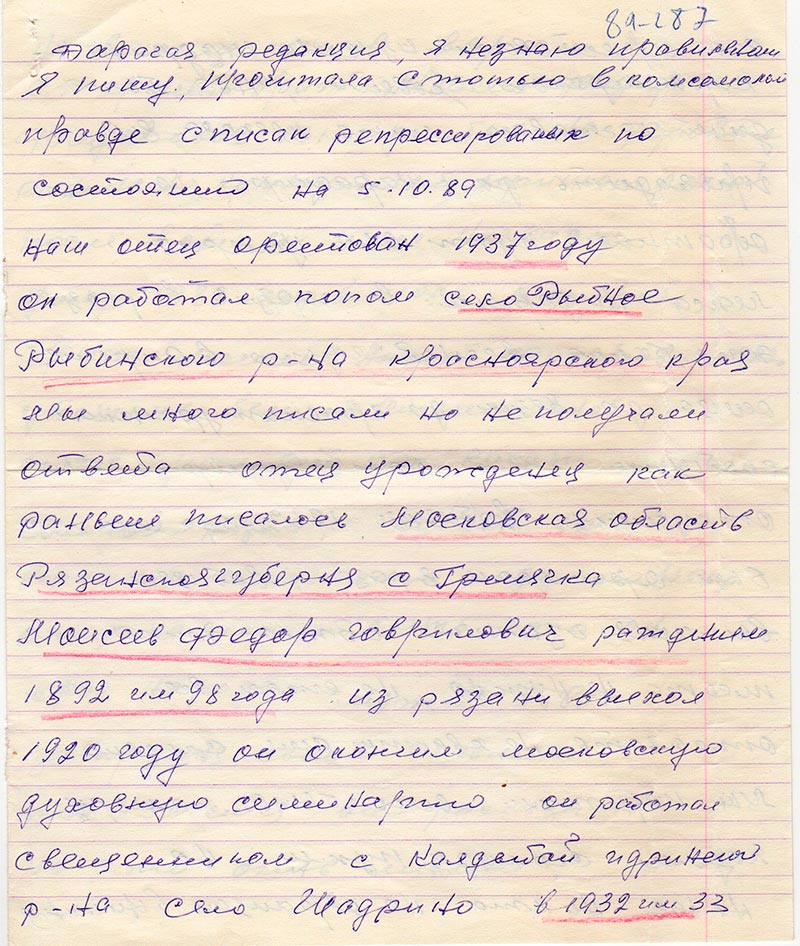 89-287
Дарагая редакция, я незнаю правильнали
Я пишу. Прочитала статью в комсомолой
правде списак репрессированых по
состоянию на 5.10.89
наш отец арестован 1937 году
он работал попом село Рыбное
Рыбинского р-на красноярского края
мы много писали но не получали
ответа отец урожденец как
раньше писалось Московская область
Рязенская губерня с Гремячка
Моисеев Федор говрилович раждением
1892 или 98 года из рязани выехал
1920 году он окончил московскую
духовную семинарию он работал
свещенником с Каядыбай идринский
р-на село Шадрино в 1932 или 33